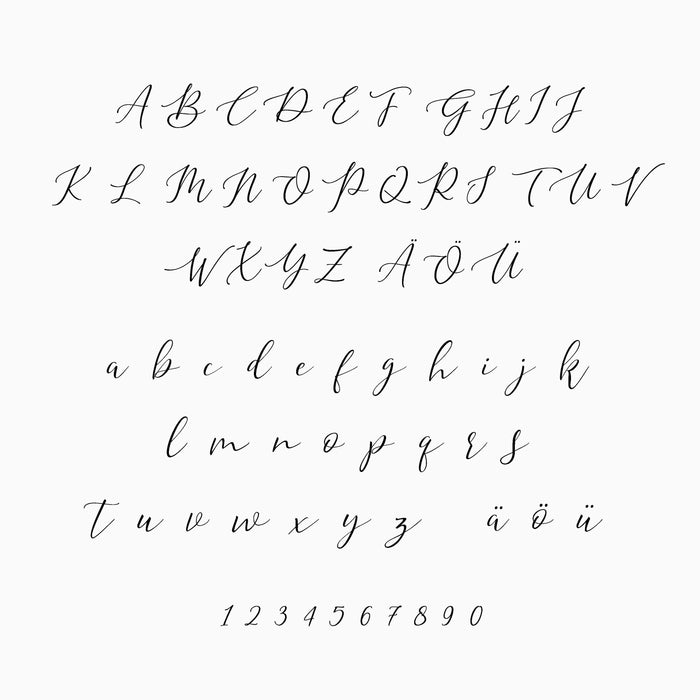 A B C D E F G H I J
K L M N O P Q R S T U V
W X Y Z Ä Ö Ü
a b c d e f g h i j k
l m n o p q r s
t u v w x y z ä ö ü
1 2 3 4 5 6 7 8 9 0